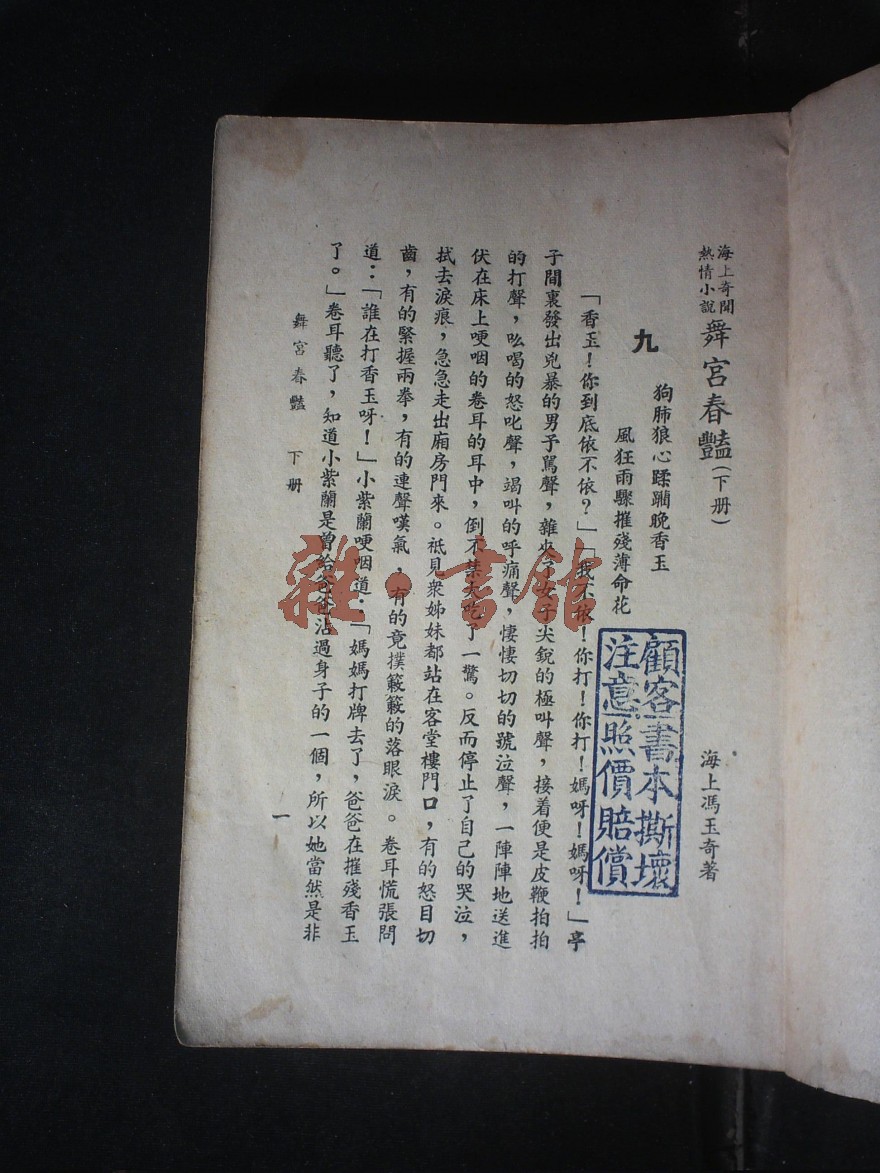 海上奇聞
熱情小說
舞宮春豔(下册)
海上馮玉奇著
九
狗肺狼心蹂躪晚香玉
風狂雨驟摧殘薄命花
「香玉！你到底依不依？」「我不依！你打！你打！媽呀！媽呀！」亭
子間裏發出兇暴的男子罵聲，雜夾了女子尖銳的極叫聲，接着便是皮鞭拍拍
的打聲，吆喝的怒叱聲，竭叫的呼痛聲，悽悽切切的號泣聲，一陣陣地送進
伏在床上哽咽的卷耳的耳中，倒不禁大吃了一驚。反而停止了自己的哭泣，
拭去淚痕，急急走出廂房門來。祗見衆姊妹都站在客堂樓門口，有的怒目切
齒，有的緊握兩拳，有的連聲嘆氣，有的竟撲簌簌的落眼淚。卷耳慌張問
道：「誰在打香玉呀！」小紫蘭哽咽道：「媽媽打牌去了，爸爸在摧殘香玉
了。」卷耳聽了，知道小紫蘭是曾給爸爸沾過身子的一個，所以她當然是非
舞宮春豔 下册
一
顧客書本撕壞
注意照價賠償
雜·書館